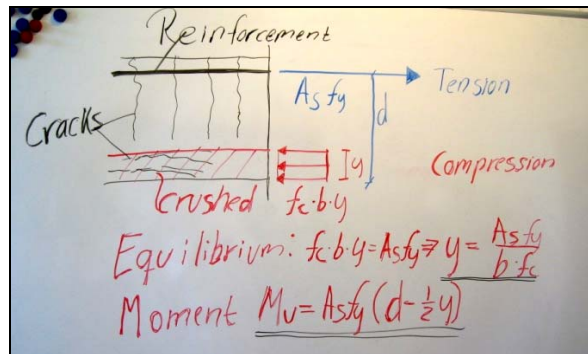 Reinforcement
As fy
Tension
d
Cracks
y
Compression
Crushed
fc·b·y
Equilibrium: fc·b·y = Asfy ⇒ y = Asfy / b·fc
Moment Mu = Asfy (d - ½y)